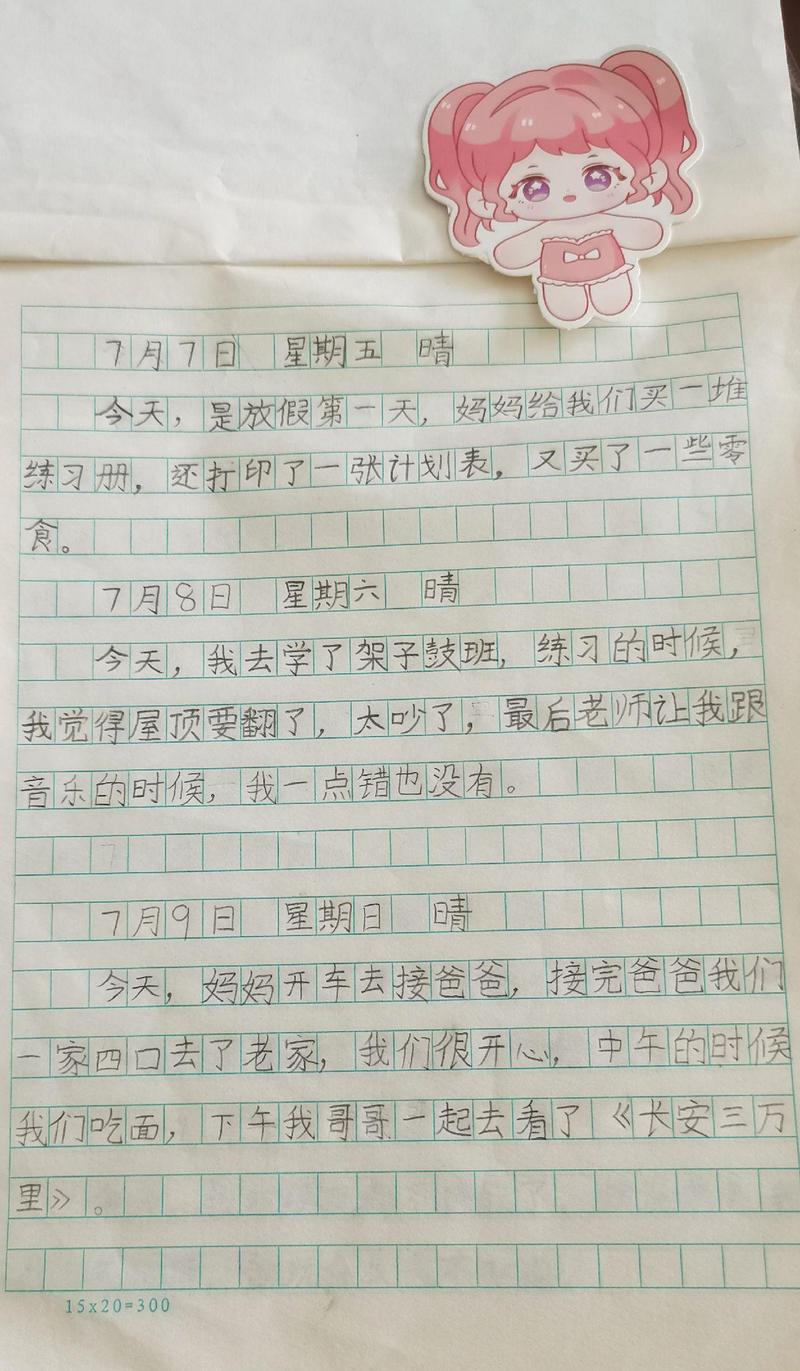 7月7日 星期五 晴
今天，是放假第一天，妈妈给我们买一堆
练习册，还打印了一张计划表，又买了一些零
食。
7月8日 星期六 晴
今天，我去学了架子鼓班，练习的时候，
我觉得屋顶要翻了，太吵了，最后老师让我跟
音乐的时候，我一点错也没有。
7月9日 星期日 晴
今天，妈妈开车去接爸爸，接完爸爸我们
一家四口去了老家，我们很开心，中午的时候
我们吃面，下午我哥哥一起去看了《长安三万
里》。
15x20=300